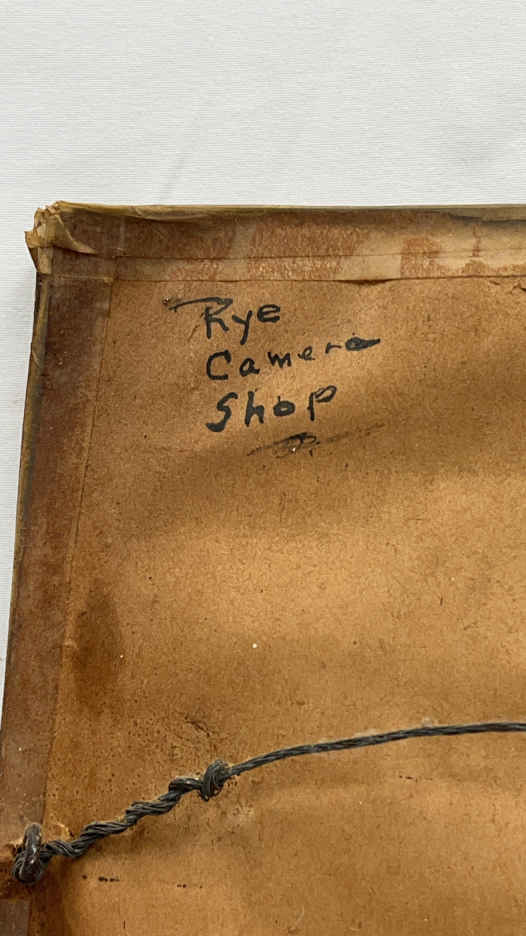 Rye
Camera
Shop